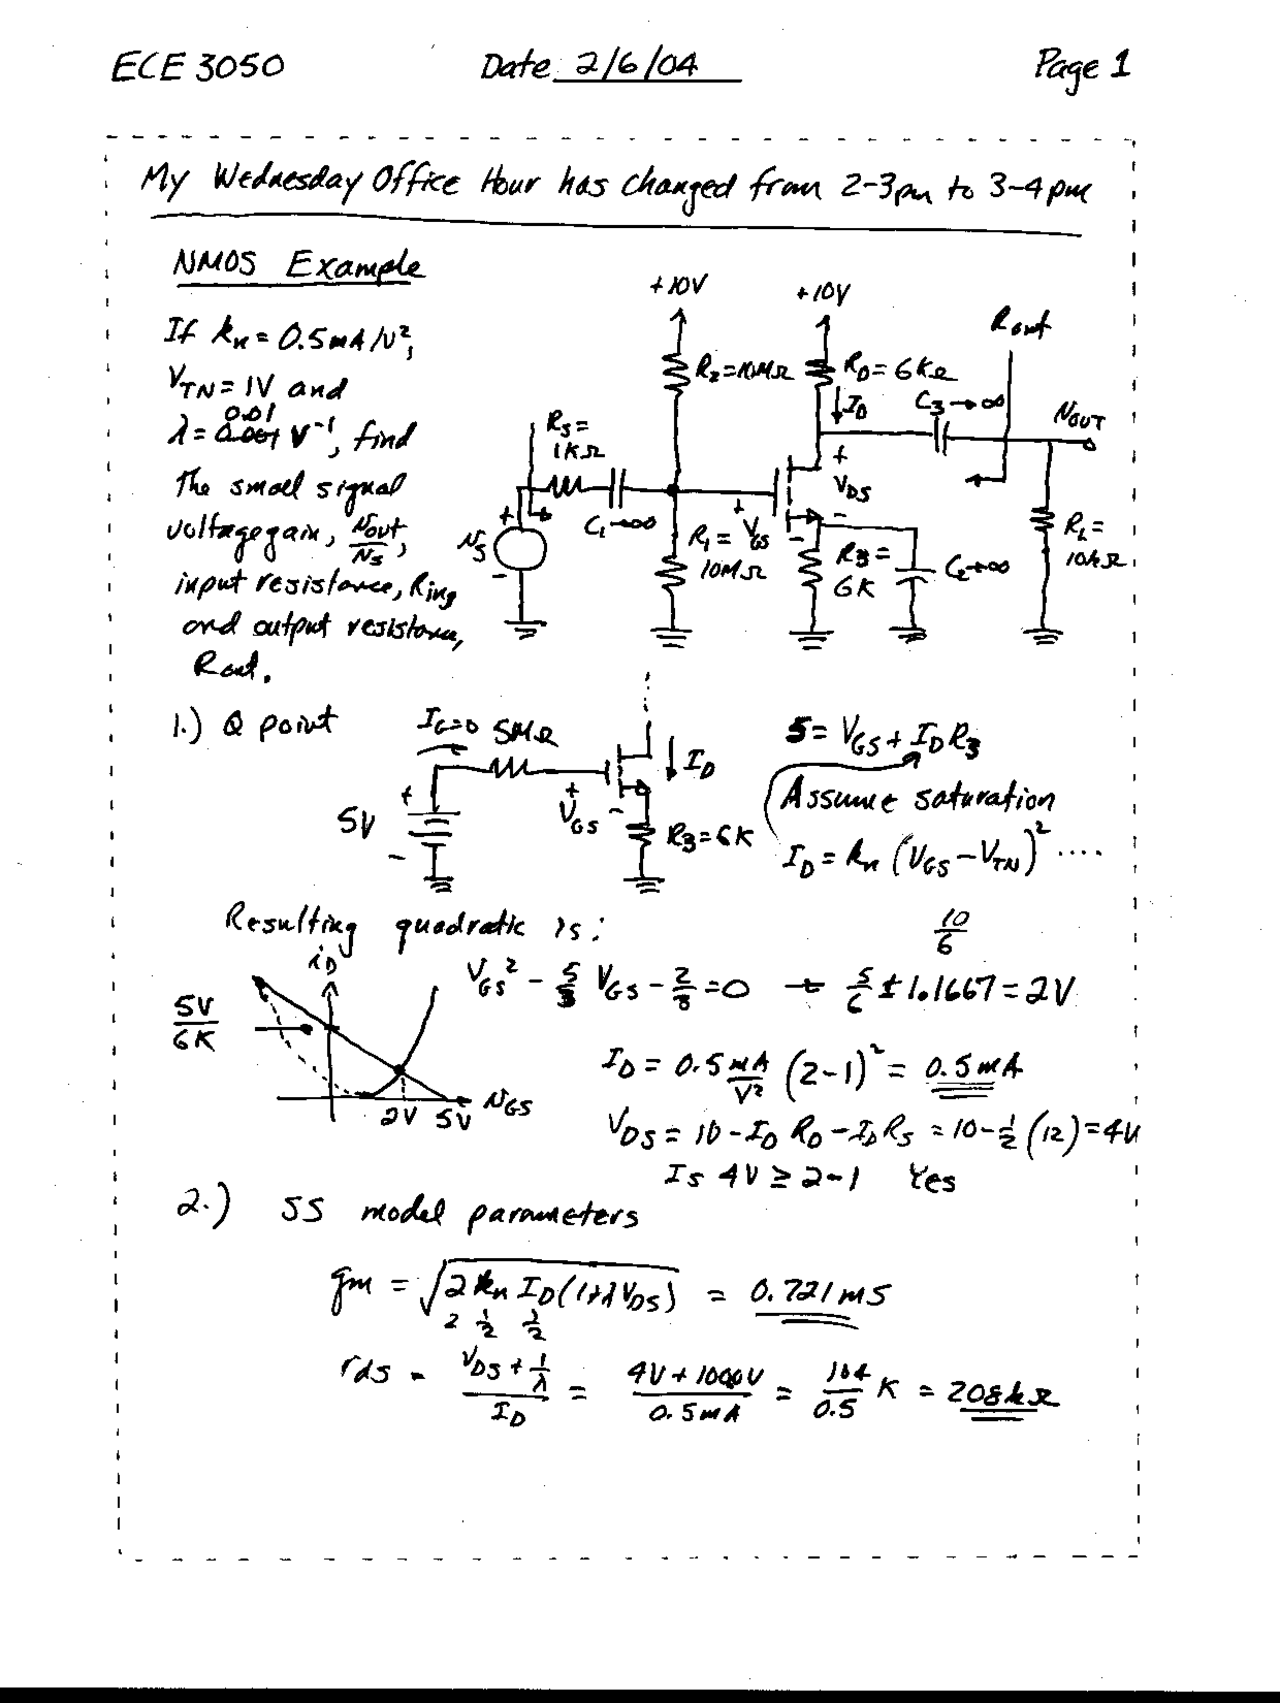 ECE 3050 Date 2/6/04 Page 1
My Wednesday Office Hour has changed from 2-3pm to 3-4pm
NMOS Example
If kn = 0.5mA/V²,
VTN = 1V and
0.01
λ = 0.001 V⁻¹, find
the small signal
voltage gain, vout/vs,
input resistance, Rin,
and output resistance,
Rout.
+10V
+10V
Rout
R2=10MΩ
RD=6KΩ
ID
C3→∞
vOUT
RS=
1KΩ
+
VDS
-
C1→∞
+
vs
-
+
VGS
-
R1=
10MΩ
R3=
6K
C2→∞
RL=
10kΩ
1.) Q point
IG=0 5MΩ
ID
+
5V
-
+
VGS
-
R3=6K
5 = VGS + ID R3
Assume saturation
ID = kn (VGS - VTN)² ....
Resulting quadratic is:
10/6
VGS² - 5/3 VGS - 2/3 = 0 → 5/6 ± 1.1667 = 2V
iD
5V/6K
2V 5V vGS
ID = 0.5 mA/V² (2-1)² = 0.5mA
VDS = 10 - ID RD - ID RS = 10 - 1/2 (12) = 4V
Is 4V ≥ 2-1 Yes
2.) SS model parameters
gm = √2 kn ID(1+λVDS) = 0.721 mS
2 1/2 1/2
rds = (VDS + 1/λ)/ID = (4V + 100V)/0.5mA = 104/0.5 K = 208kΩ